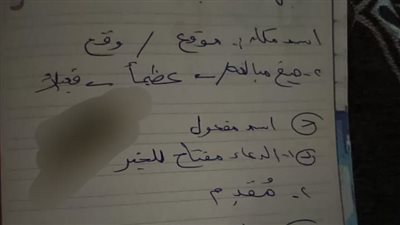 اسم مكان: موقع / وقع
٢- صيغ مبالغة ← عظيماً ← فعيلاً
٥ اسم مفعول
١- الدعاء مفتاح للخير
٢- مُقدِم